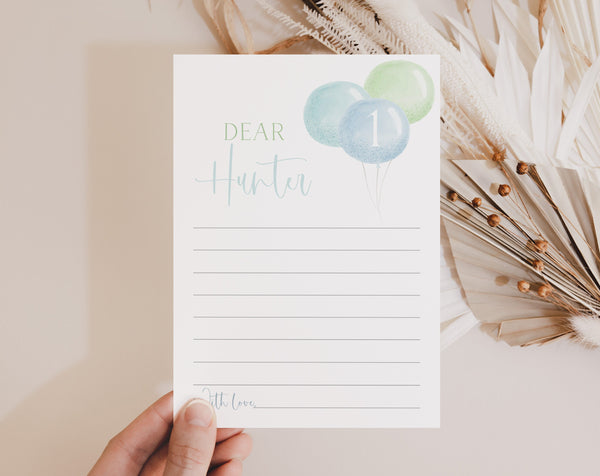 DEAR
1
Hunter
With love,